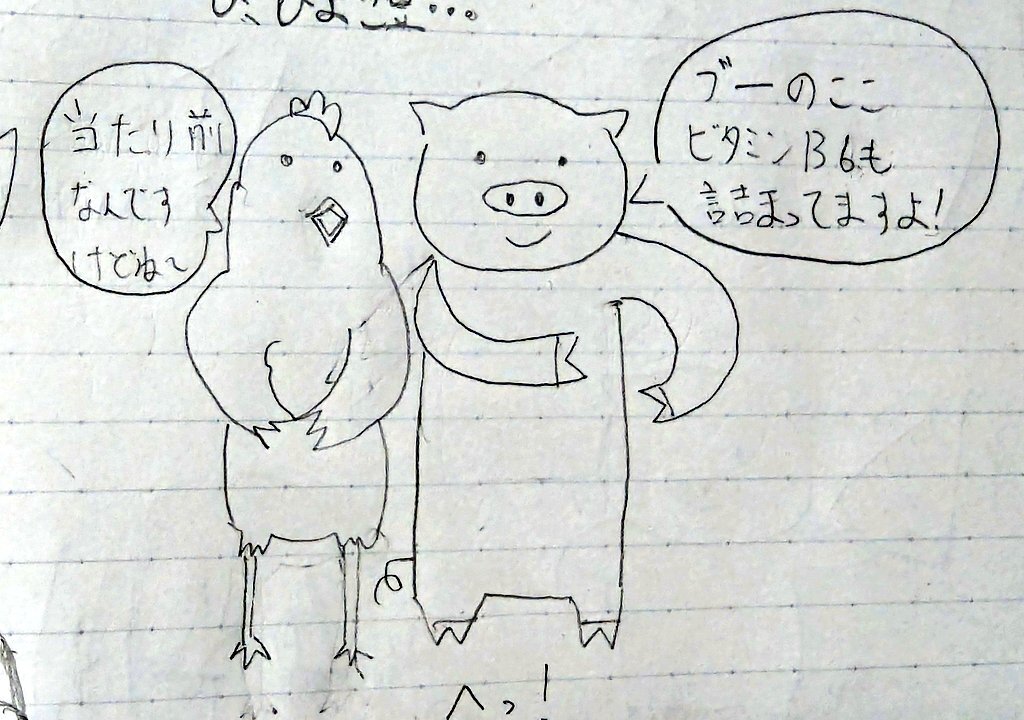 ブーのここ
ビタミンB6も
詰まってますよ!
当たり前
なんです
けどね～
へっ!